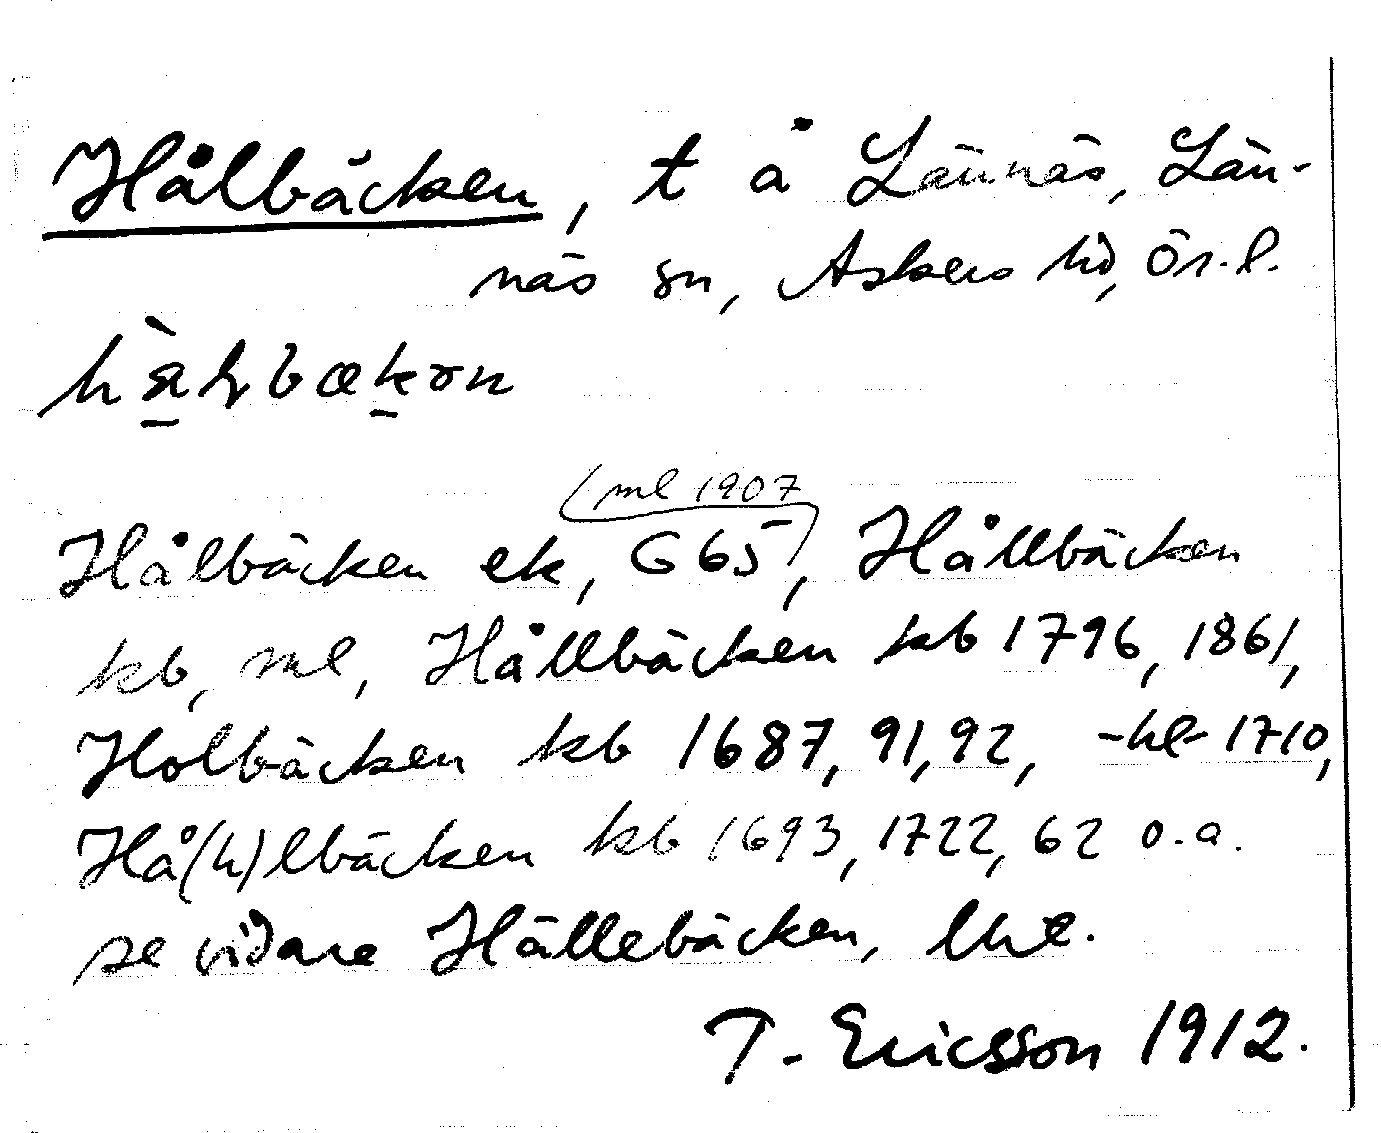 Hålbäcken, t å Lännäs, Län-
näs sn, Askers hd, Ör. l.
Hålbäcken ek, G65 (ml 1907), Hållbäcken
kb, ml, Hållbäcken kb 1796, 1861,
Holbäcken kb 1687, 91, 92, -hl- 1710,
Hå(h)lbäcken kb 1693, 1722, 62 o.a.
se vidare Hällebäcken,
T. Ericsson 1912.